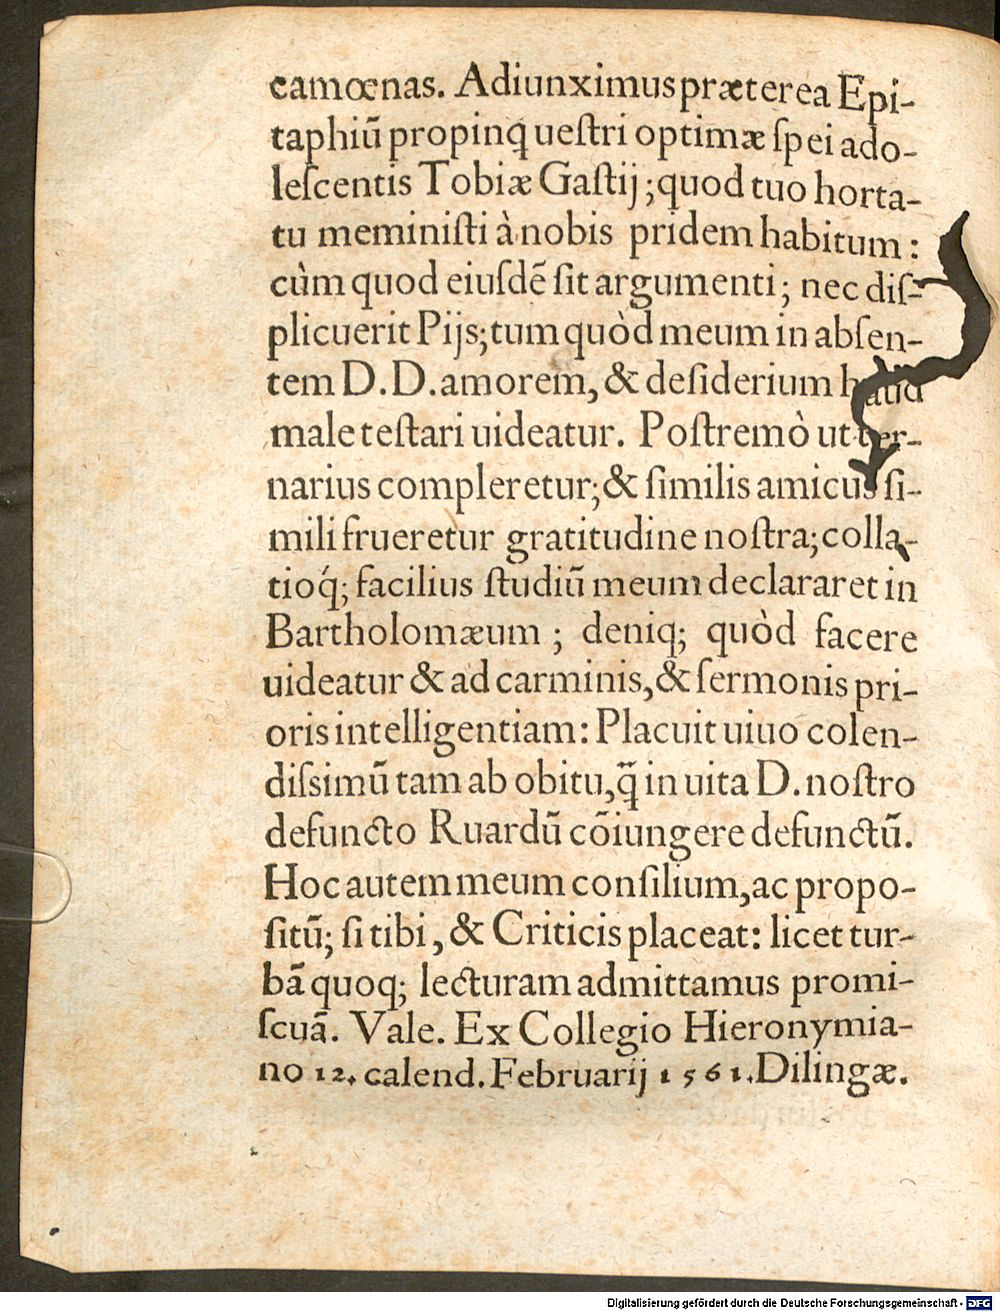 camœnas. Adiunximus præterea Epi-
taphiũ propinq̃ ueſtri optimæ ſpei ado-
leſcentis Tobiæ Gaſtij; quod tuo horta-
tu meminiſti à nobis pridem habitum:
cùm quod eiuſdẽ ſit argumenti; nec diſ-
plicuerit Pijs; tum quòd meum in abſen-
tem D. D. amorem, & deſiderium haud
male teſtari uideatur. Poſtremò ut ter-
narius compleretur; & ſimilis amicus ſi-
mili frueretur gratitudine noſtra; colla-
tioq́; facilius ſtudiũ meum declararet in
Bartholomæum; deniq; quòd facere
uideatur & ad carminis, & ſermonis pri-
oris intelligentiam: Placuit uiuo colen-
diſsimũ tam ab obitu, q̃ in uita D. noſtro
defuncto Ruardũ cõiungere defunctũ.
Hoc autem meum conſilium, ac propo-
ſitũ; ſi tibi, & Criticis placeat: licet tur-
bã quoq; lecturam admittamus promi-
ſcuã. Vale. Ex Collegio Hieronymia-
no 12. calend. Februarij 1561. Dilingæ.
Digitalisierung gefördert durch die Deutsche Forschungsgemeinschaft - DFG